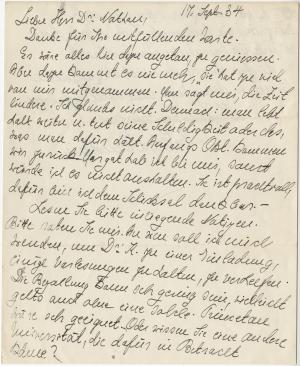 17. Sept. 34
Lieber Herr Dr. Nathan,
Danke für Ihre mitfühlenden Worte.
Es wäre alles hier dazu angetan, zu geniessen.
Aber dazu kommt es nie mehr. Sie hat zu viel
von mir mitgenommen. Man sagt mir, die Zeit
lindere. Ich glaube nicht. Demnach: man lebt
halt weiter u. tut seine Schuldigkeit oder das,
was man dafür hält. Anfangs Okt. kommen
wir zurück. Margot hab ich bei mir, sonst
würde ich es nicht aushalten. Sie ist prachtvoll,
dafür bin ich dem Schicksal dankbar.
Lesen Sie bitte inliegende Notizen.
Bitte raten Sie mir. An wen soll ich mich
wenden, um Dr. K. zu einer Einladung,
einige Vorlesungen zu halten, zu verhelfen.
Die Bezahlung kann sehr gering sein, vielleicht
geht's auch ohne eine solche. Princeton
wäre sehr geeignet. Oder wissen Sie eine andere
Universität, die dafür in Betracht
käme?